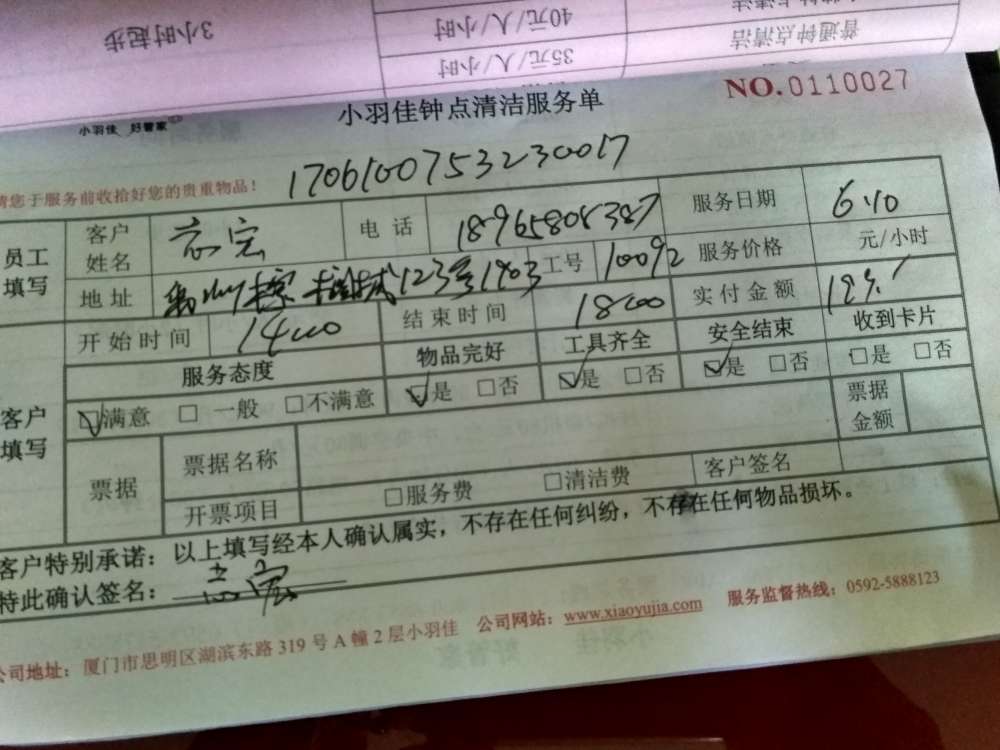 3小时起步
40元/人/小时
35元/人/小时
普通钟点清洁
小羽佳 好管家
小羽佳钟点清洁服务单
NO.0110027
请您于服务前收拾好您的贵重物品!
1706100753230017
员工填写
客户姓名 志宏 电话 18965808387 服务日期 6.10
地址 123号1403 工号 10092 服务价格 元/小时
开始时间 1400 结束时间 1800 实付金额
客户填写
服务态度 物品完好 工具齐全 安全结束 收到卡片
☑满意 □一般 □不满意 ☑是 □否 ☑是 □否 ☑是 □否 □是 □否
票据 票据名称 票据金额
开票项目 □服务费 □清洁费 客户签名
客户特别承诺:以上填写经本人确认属实,不存在任何纠纷,不存在任何物品损坏。
特此确认签名: 志宏
公司地址:厦门市思明区湖滨东路319号A幢2层小羽佳 公司网站:www.xiaoyujia.com 服务监督热线:0592-5888123